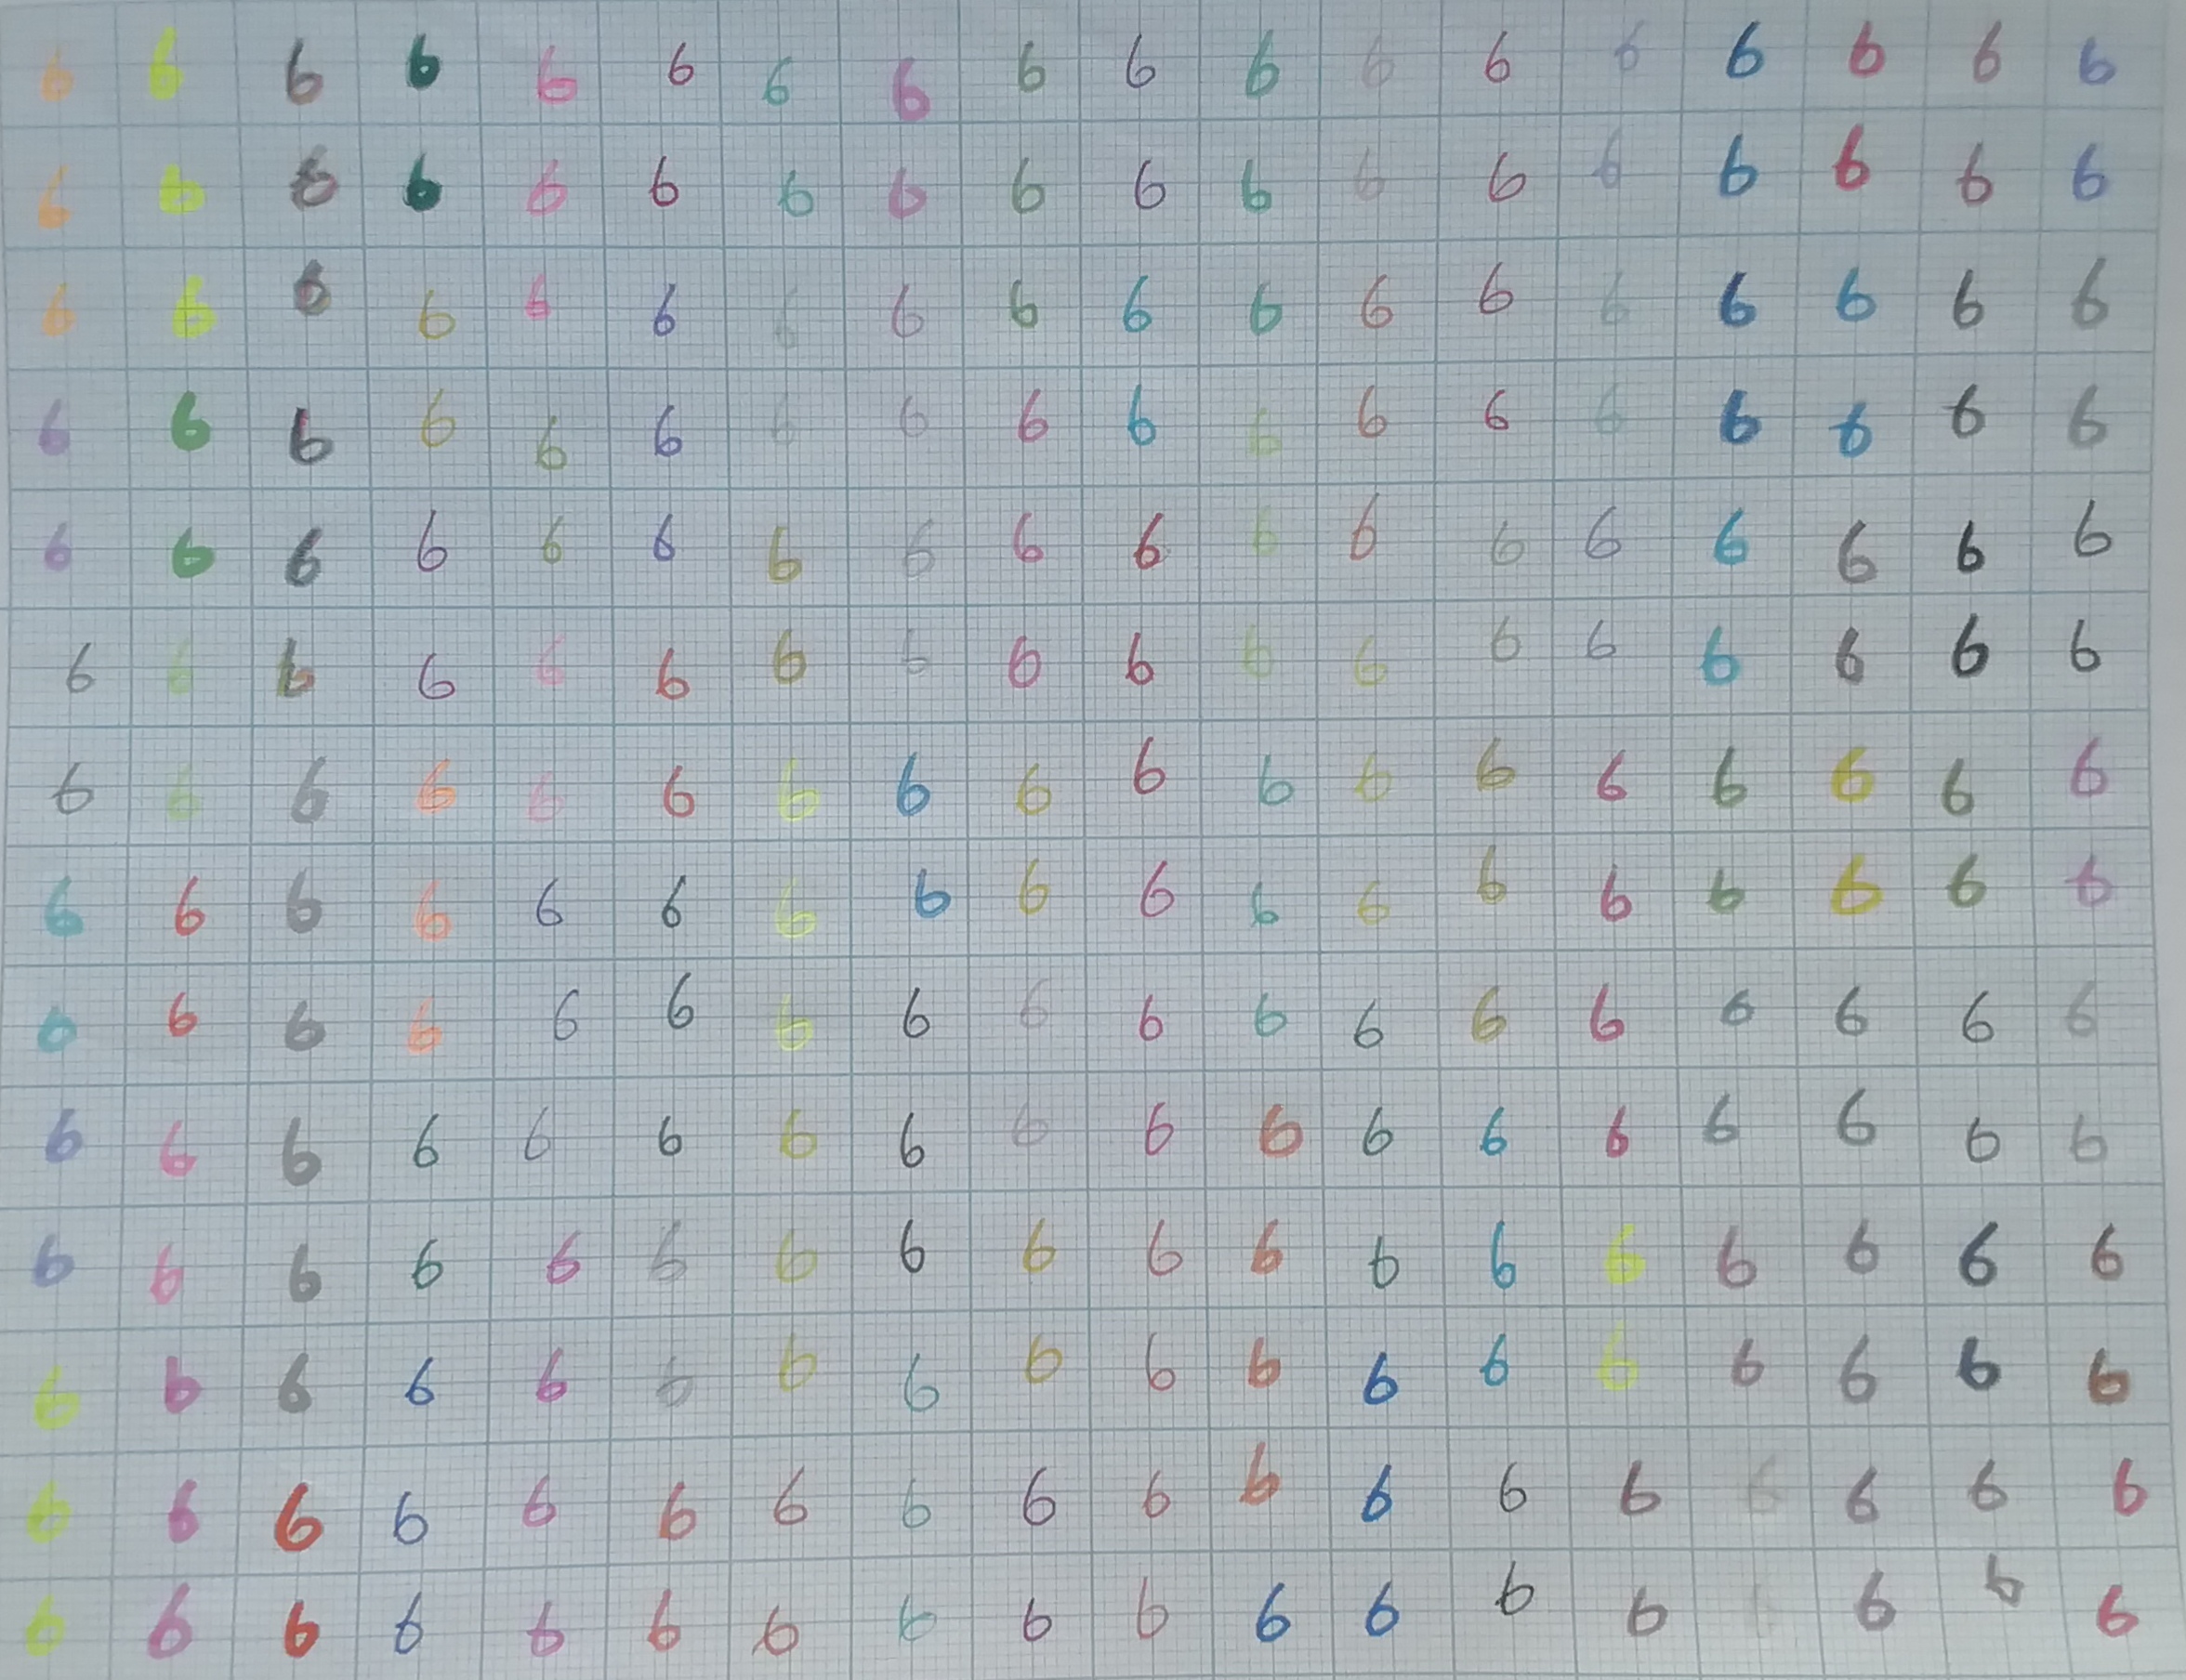 6 6 6 6 6 6 6 6 6 6 6 6 6 6 6 6 6 6
6 6 6 6 6 6 6 6 6 6 6 6 6 6 6 6 6 6
6 6 6 6 6 6 6 6 6 6 6 6 6 6 6 6 6 6
6 6 6 6 6 6 6 6 6 6 6 6 6 6 6 6 6 6
6 6 6 6 6 6 6 6 6 6 6 6 6 6 6 6 6 6
6 6 6 6 6 6 6 6 6 6 6 6 6 6 6 6 6 6
6 6 6 6 6 6 6 6 6 6 6 6 6 6 6 6 6 6
6 6 6 6 6 6 6 6 6 6 6 6 6 6 6 6 6 6
6 6 6 6 6 6 6 6 6 6 6 6 6 6 6 6 6 6
6 6 6 6 6 6 6 6 6 6 6 6 6 6 6 6 6 6
6 6 6 6 6 6 6 6 6 6 6 6 6 6 6 6 6 6
6 6 6 6 6 6 6 6 6 6 6 6 6 6 6 6 6 6
6 6 6 6 6 6 6 6 6 6 6 6 6 6 6 6 6 6
6 6 6 6 6 6 6 6 6 6 6 6 6 6 6 6 6